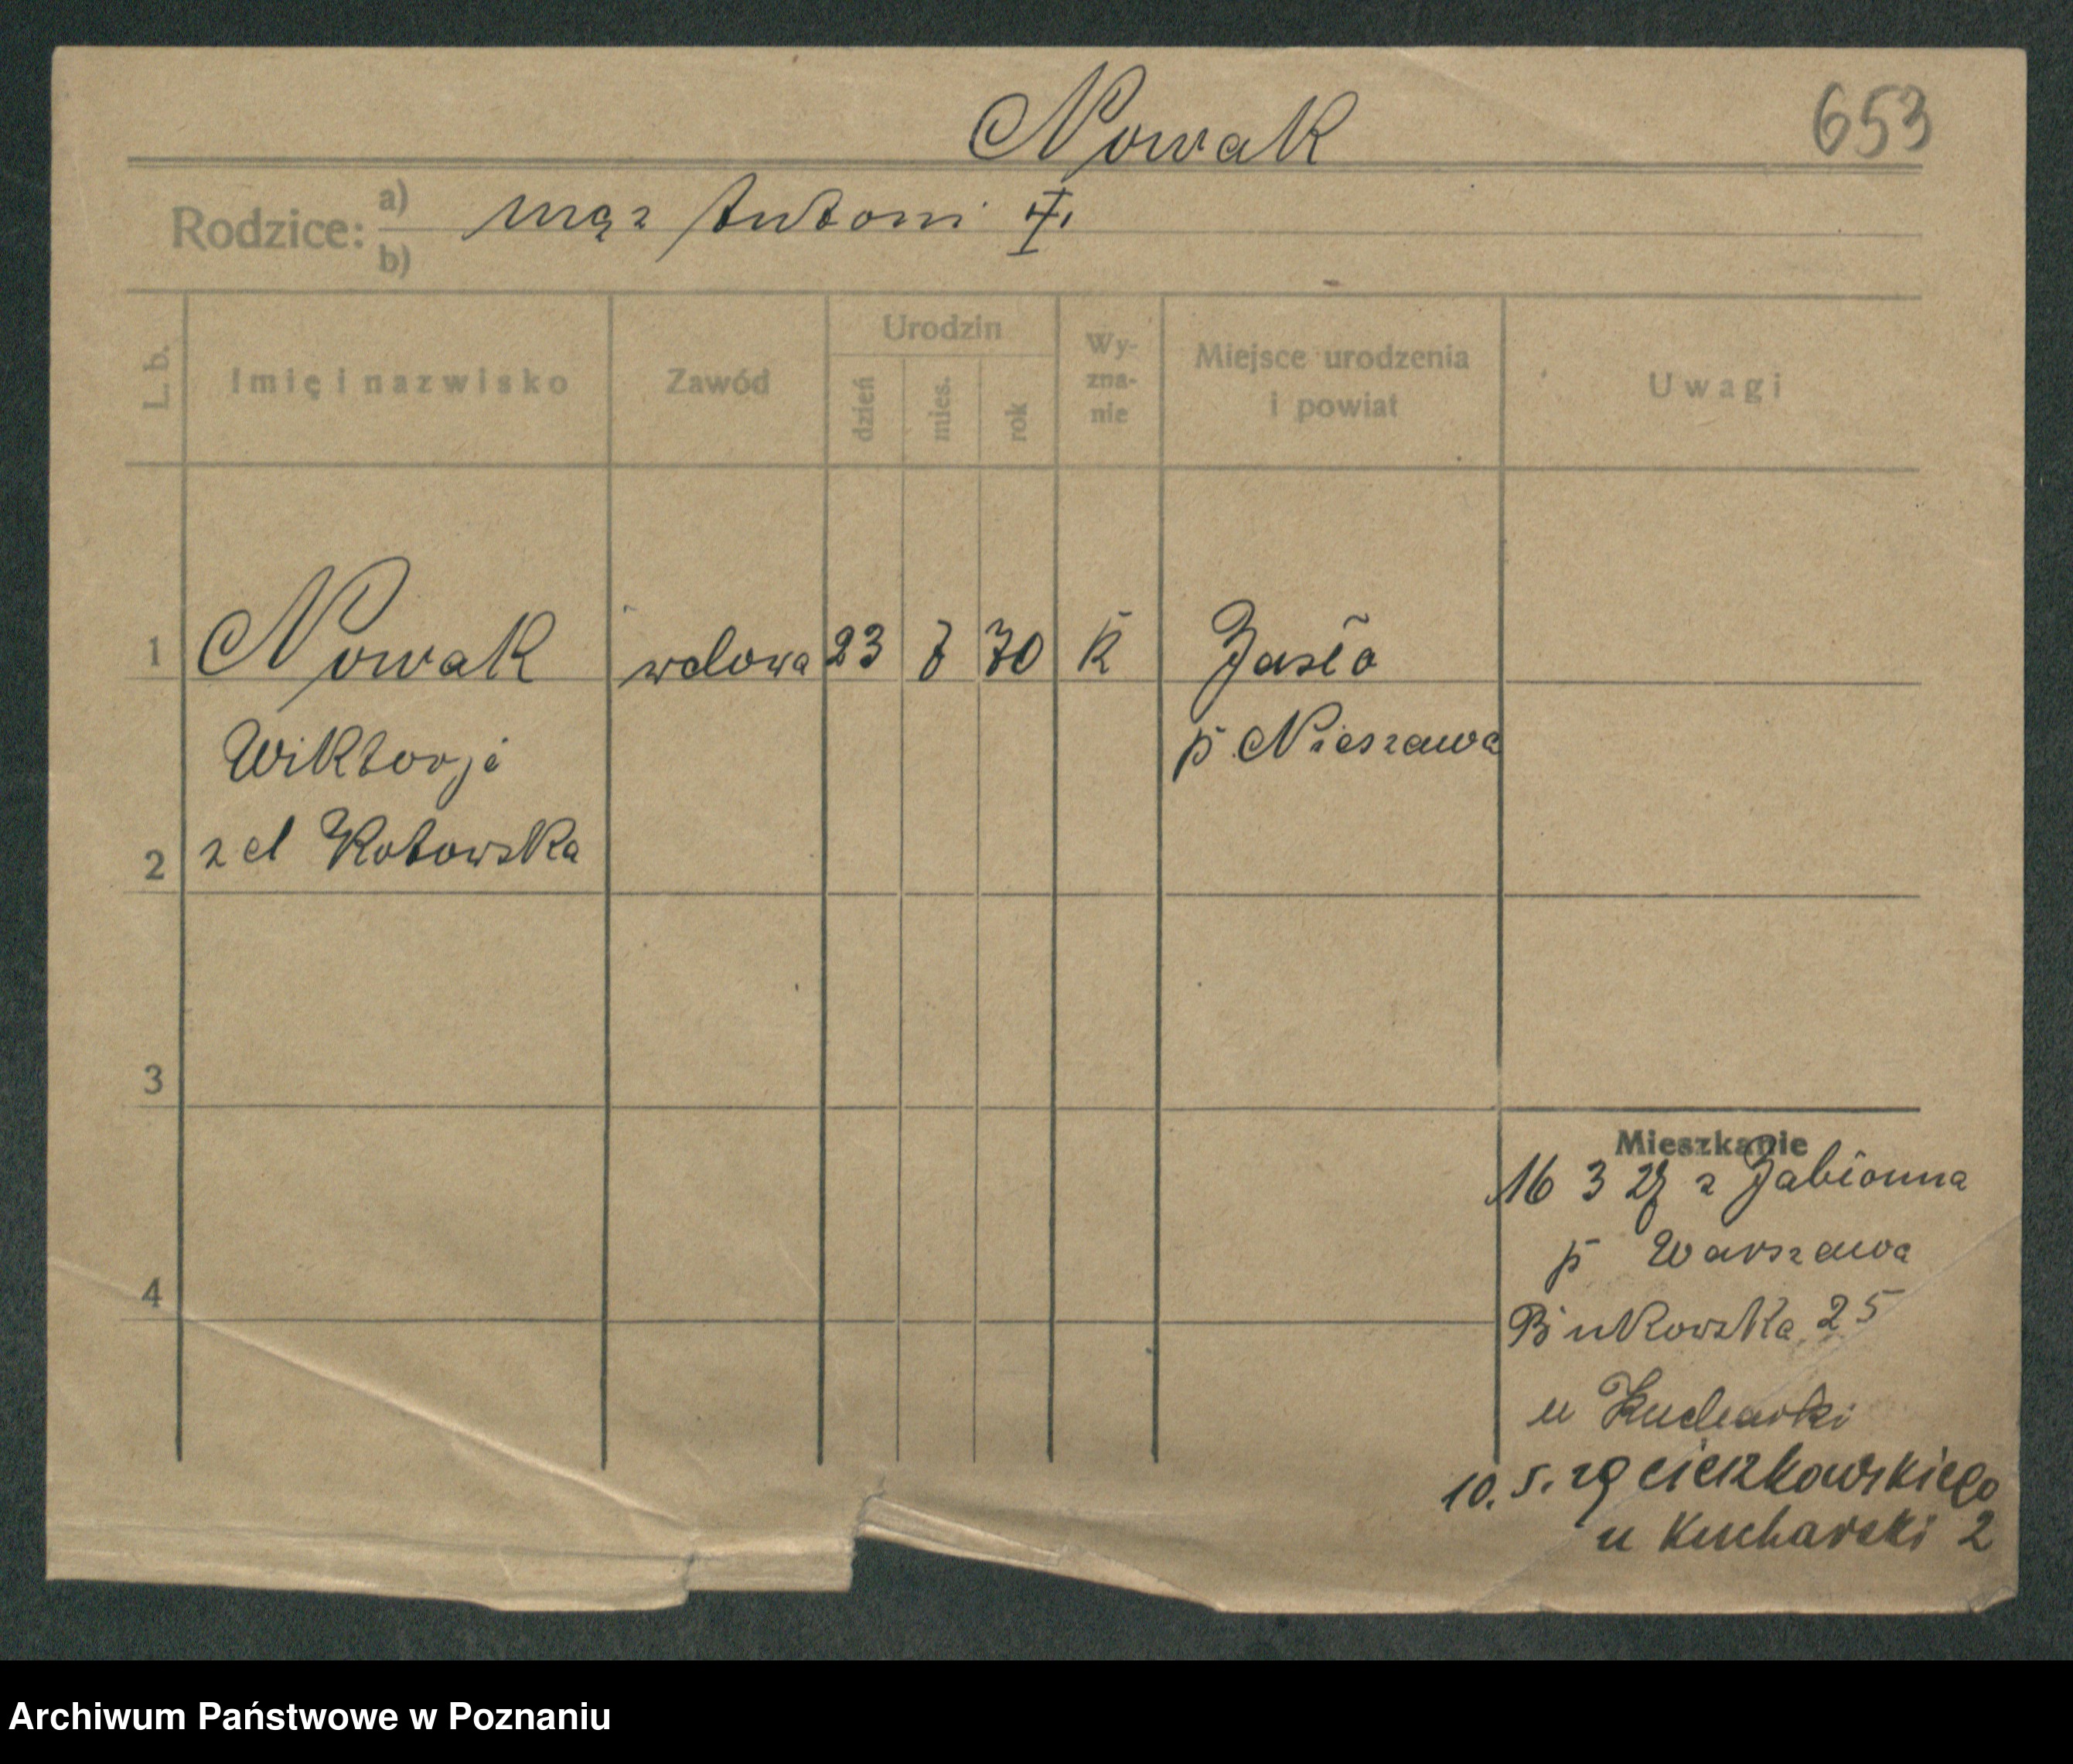 Nowak
653
Rodzice: a) mąż Antoni
b)
L. b.
Imię i nazwisko
Zawód
Urodzin
dzień
mies.
rok
Wy-
zna-
nie
Miejsce urodzenia
i powiat
Uwagi
1 Nowak wdowa 23 70 k Jasło
Wiktorja p. Nieszawa
2 z d Kotowska
3
4
Mieszkanie
16 3 27 z Jabłonna
p Warszawa
Bukowska 25
u Kucharski
10. 5. 29 Cieszkowskiego
u Kucharski 2
Archiwum Państwowe w Poznaniu